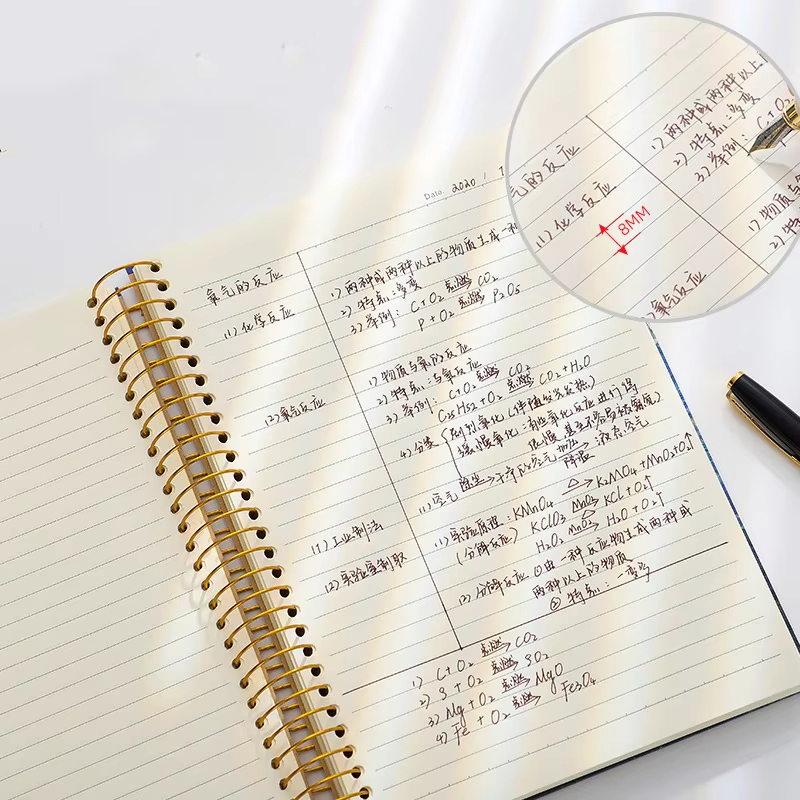 Date 2020 / 1
氧气的反应
(1) 化学反应
1) 两种或两种以上的物质生成一种
2) 特点:多变一
3) 举例: C+O2 点燃→ CO2
P+O2 点燃→ P2O5
(2) 氧气反应
1) 物质与氧的反应
2) 特点:与氧反应
3) 举例: C+O2 点燃→ CO2
+O2 点燃→ CO2+H2O
4) 分类 { 剧烈氧化 (伴随发光发热)
缓慢氧化:有些氧化反应进行得
很慢 甚至不容易被察觉)
(1) 工业制法
(1) 空气 除尘→ 干净的空气 加压→降温 液态空气
(2) 实验室制取
(1) 实验原理: KMnO4 △→ K2MO4+MnO2+O2↑
(分解反应) KClO3 MnO2→△ KCl+O2↑
H2O2 MnO2→ H2O+O2↑
(2) 分解反应 ①由一种反应物生成两种或
两种以上的物质
② 特点:一变多
1) C+O2 点燃→ CO2
2) S+O2 点燃→ SO2
3) Mg+O2 点燃→ MgO
4) Fe+O2 点燃→ Fe3O4
气的反应
(1) 化学反应
8MM
1) 两种或两种以上
2) 特点:多变
3) 举例: C+O2
1) 物质与
2) 特
氧气反应